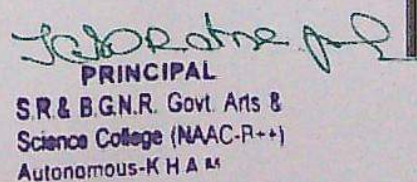 PRINCIPAL
S.R & B.G.N.R. Govt. Arts &
Science College (NAAC-A++)
Autonomous-K H A M